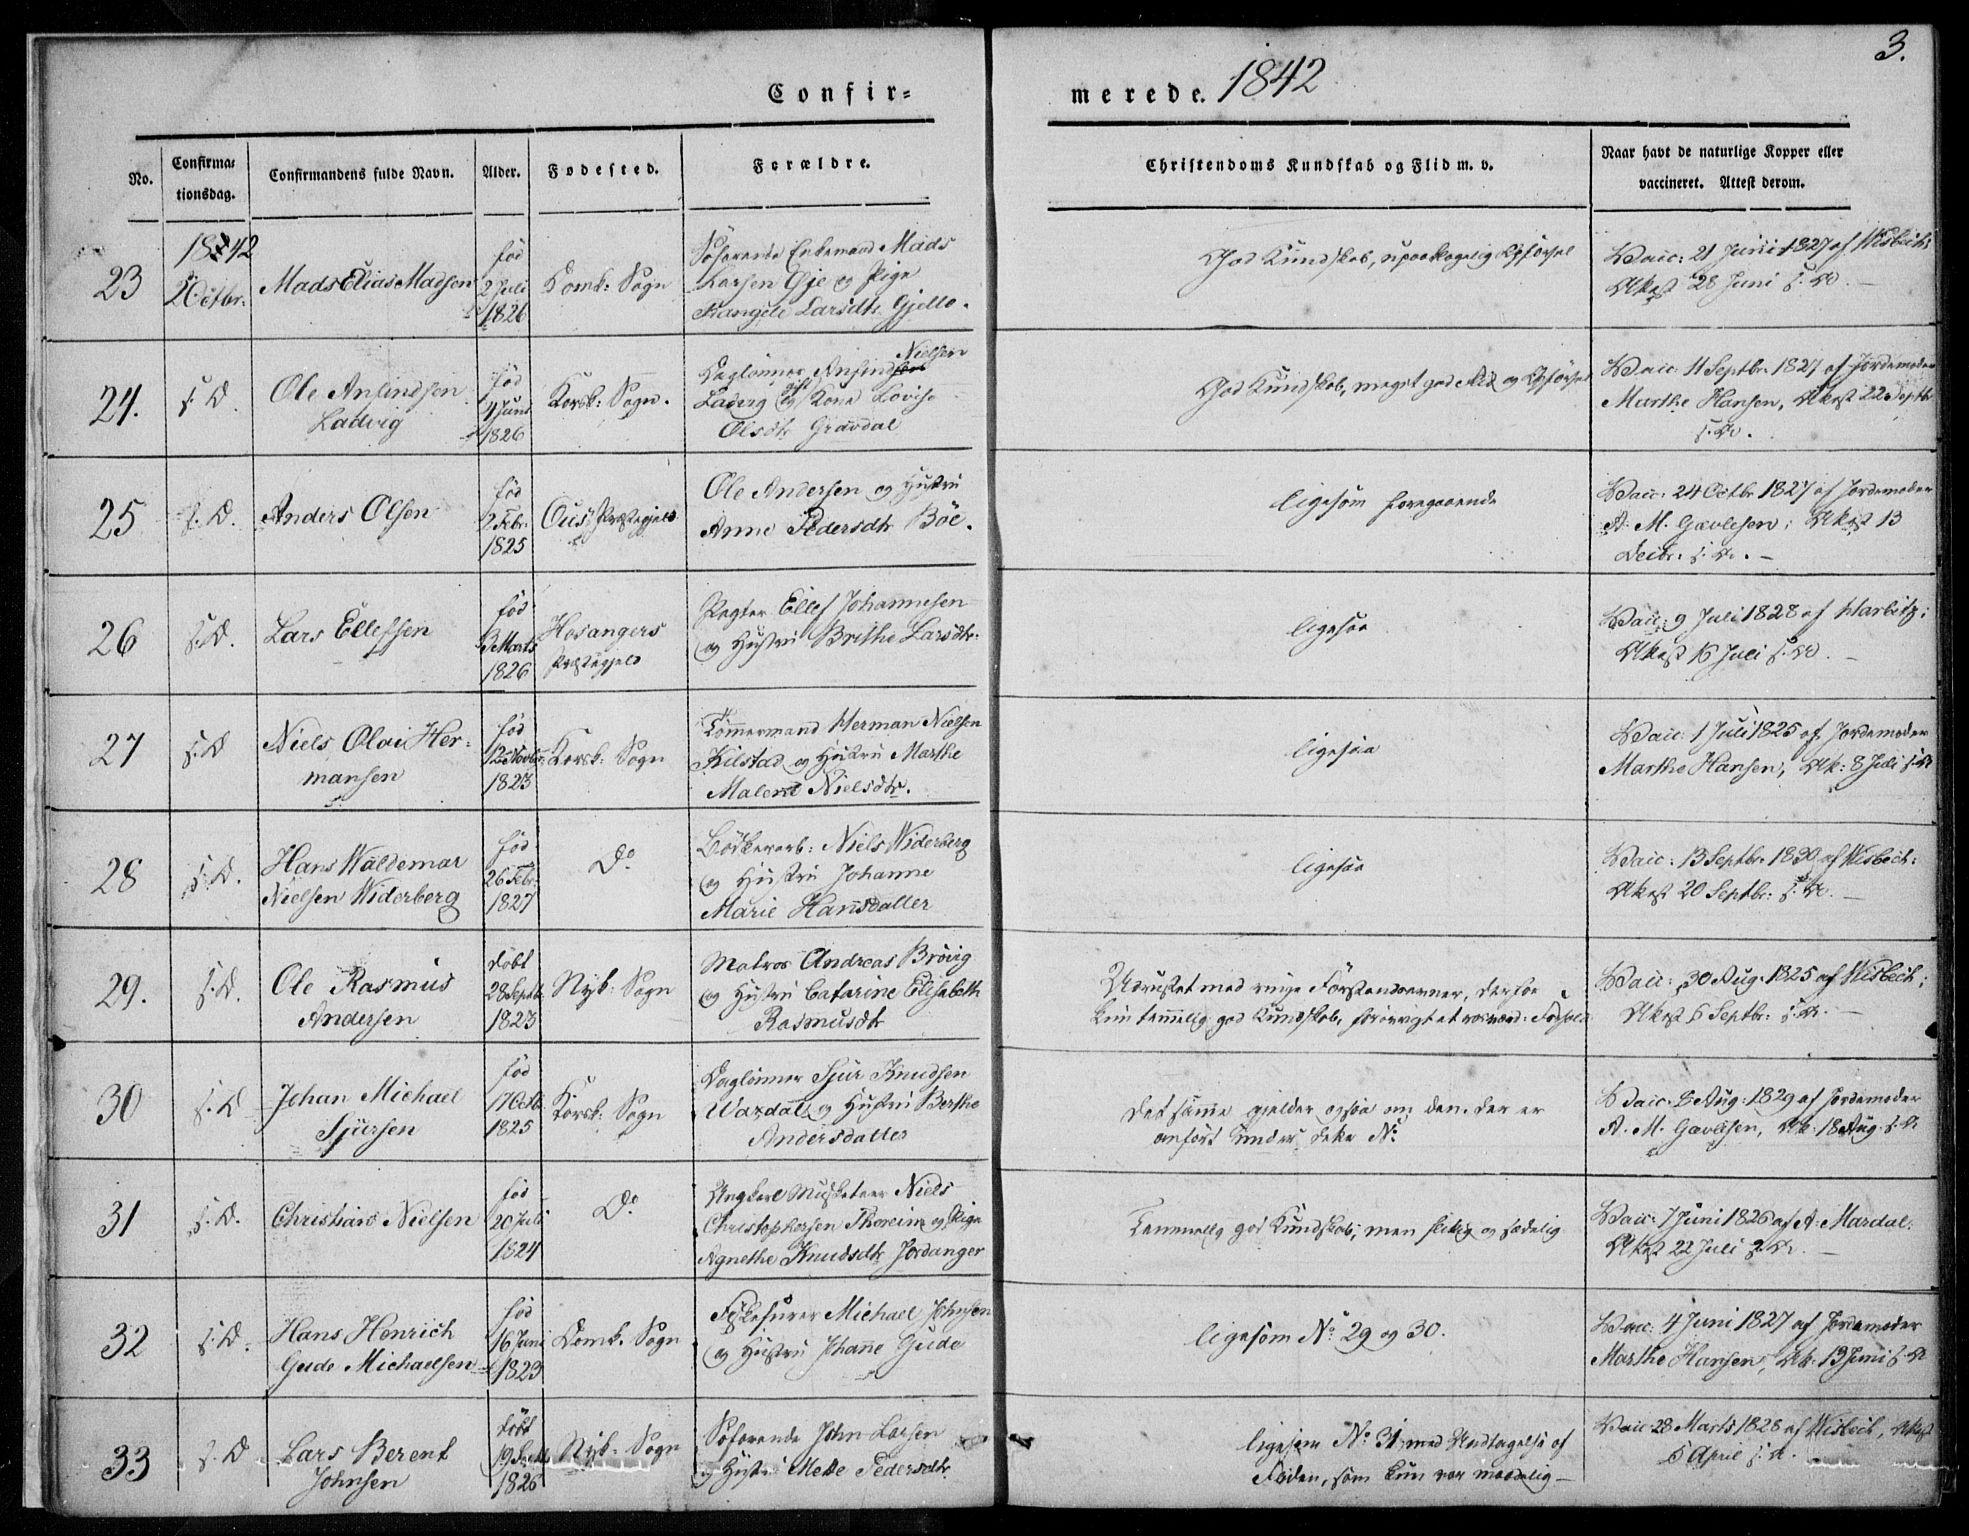 3.
Confir= merede. 1842
No.
Confirma=
tionsdag.
Confirmandens fulde Navn.
Alder.
Fødested.
Forældre.
Christendoms Kundskab og Flid m. v.
Naar havt de naturlige Kopper eller
vaccineret. Attest derom.
23
1842
2 Octbr.
Mads Elias Madsen
fød
2 Juli
1826
Domk: Sogn
Søfarende Enkemand Mads
Larsen Øje og Pige
Larsdtr Gjello.
God Kundskab, upaaklagelig Opførsel
Vacc: 21 Juni 1827 af Wisbech;
Attest 28 Juni s. D.
24.
s. D.
Ole Anfindsen
Ladvig
fød
4 Juni
1826
Korsk: Sogn.
Nielsen
Daglønner Anfind
Ladvig og Kone Lovise
Olsdtr Gravdal
God Kundskab, meget god Flid og Opførsel
Vacc: 11 Septbr. 1827 af Jordemoder
Marthe Hansen, Attest 22 Septbr
s. D.
25
s. D.
Anders Olsen
fød
2 Febr:
1825
Ous Præstegjeld
Ole Andersen og Hustru
Anne Pedersdtr Böe.
ligesom foregaaende
Vacc: 24 Octbr 1827 af Jordemoder
A. M. Gavlesen; Attest 13
Decbr. s. D.
26
s. D.
Lars Ellefsen
fød
3 Marts
1826
Hosangers
Præstegjeld
Ellef Johannesen
og Hustru Brithe Larsdtr:
ligesaa
Vacc: 9 Juli 1828 af Harbitz;
Attest 16 Juli s. D.
27
s. D
Niels Olai Her=
mansen
fød
12 Novbr:
1823
Korsk: Sogn
Tømmermand Herman Nielsen
Kilstad og Hustru Marthe
Malene Nielsdtr.
ligesaa
Vacc: 1 Juli 1825 af Jordemoder
Marthe Hansen, Att: 8 Juli s. D
28
s. D.
Hans Waldemar
Nielsen Widerberg
fød
26 Febr:
1827
Do
Bødkerarb: Niels Widerberg
og Hustru Johanne
Marie Hansdatter
ligesaa
Vacc: 13 Septbr. 1830 af Wisbech:
Attest 20 Septbr: s. D.
29.
s. D.
Ole Rasmus
Andersen
døbt
28 Septbr
1823
Nyk: Sogn
Matros Andreas Bröig
og Hustru Catarine Elisabeth
Rasmusdtr
Udrustet med ringe Forstandsevner, derfor
kun temmelig god Kundskab, forøvrigt
Vacc: 30 Aug. 1825 af Wisbech;
Attest 6 Septbr: s. D.
30
s. D
Johan Michael
Sjursen
fød
17 Octb
1825
Korsk: Sogn
Daglønner Sjur Knudsen
Wazdal og Hustru Berthe
Andersdatter
Det samme gjelder ogsaa om den, der er
anført under dette No
Vacc. 8 Aug: 1829 af Jordemoder
A. M. Gavlesen, Att: 18 Aug s. D
31
s. D.
Christian Nielsen
fød
20 Juli
1824
Do
Ungkarl Musketeer Niels
Christophersen Thoreim og Pige
Agnethe Knudsdtr Jordanger
Temmelig god Kundskab, men flittig og sædelig
Vacc: 7 Juni 1826 af A. Mardal.
Attest 22 Juli s. D.
32
s. D.
Hans Henrich
Gude Michaelsen
fød
16 Juni
1823
Domk. Sogn
Michael Johnsen
og Hustru Johanne Gude
ligesom No 29 og 30.
Vacc: 4 Juni 1827 af Jordemoder
Marthe Hansen, Att: 13 Juni s. D
33
s. D
Lars Berent
Johnsen
døbt
19
1826
Nyk: Sogn
Søfarende John Larsen
og Hustru Mette Pedersdtr
ligesom No 31 med Undtagelse af
Fliden, som kun var maadelig
Vacc 28 Marts 1828 af Wisbech, Attest
5 April s. D.